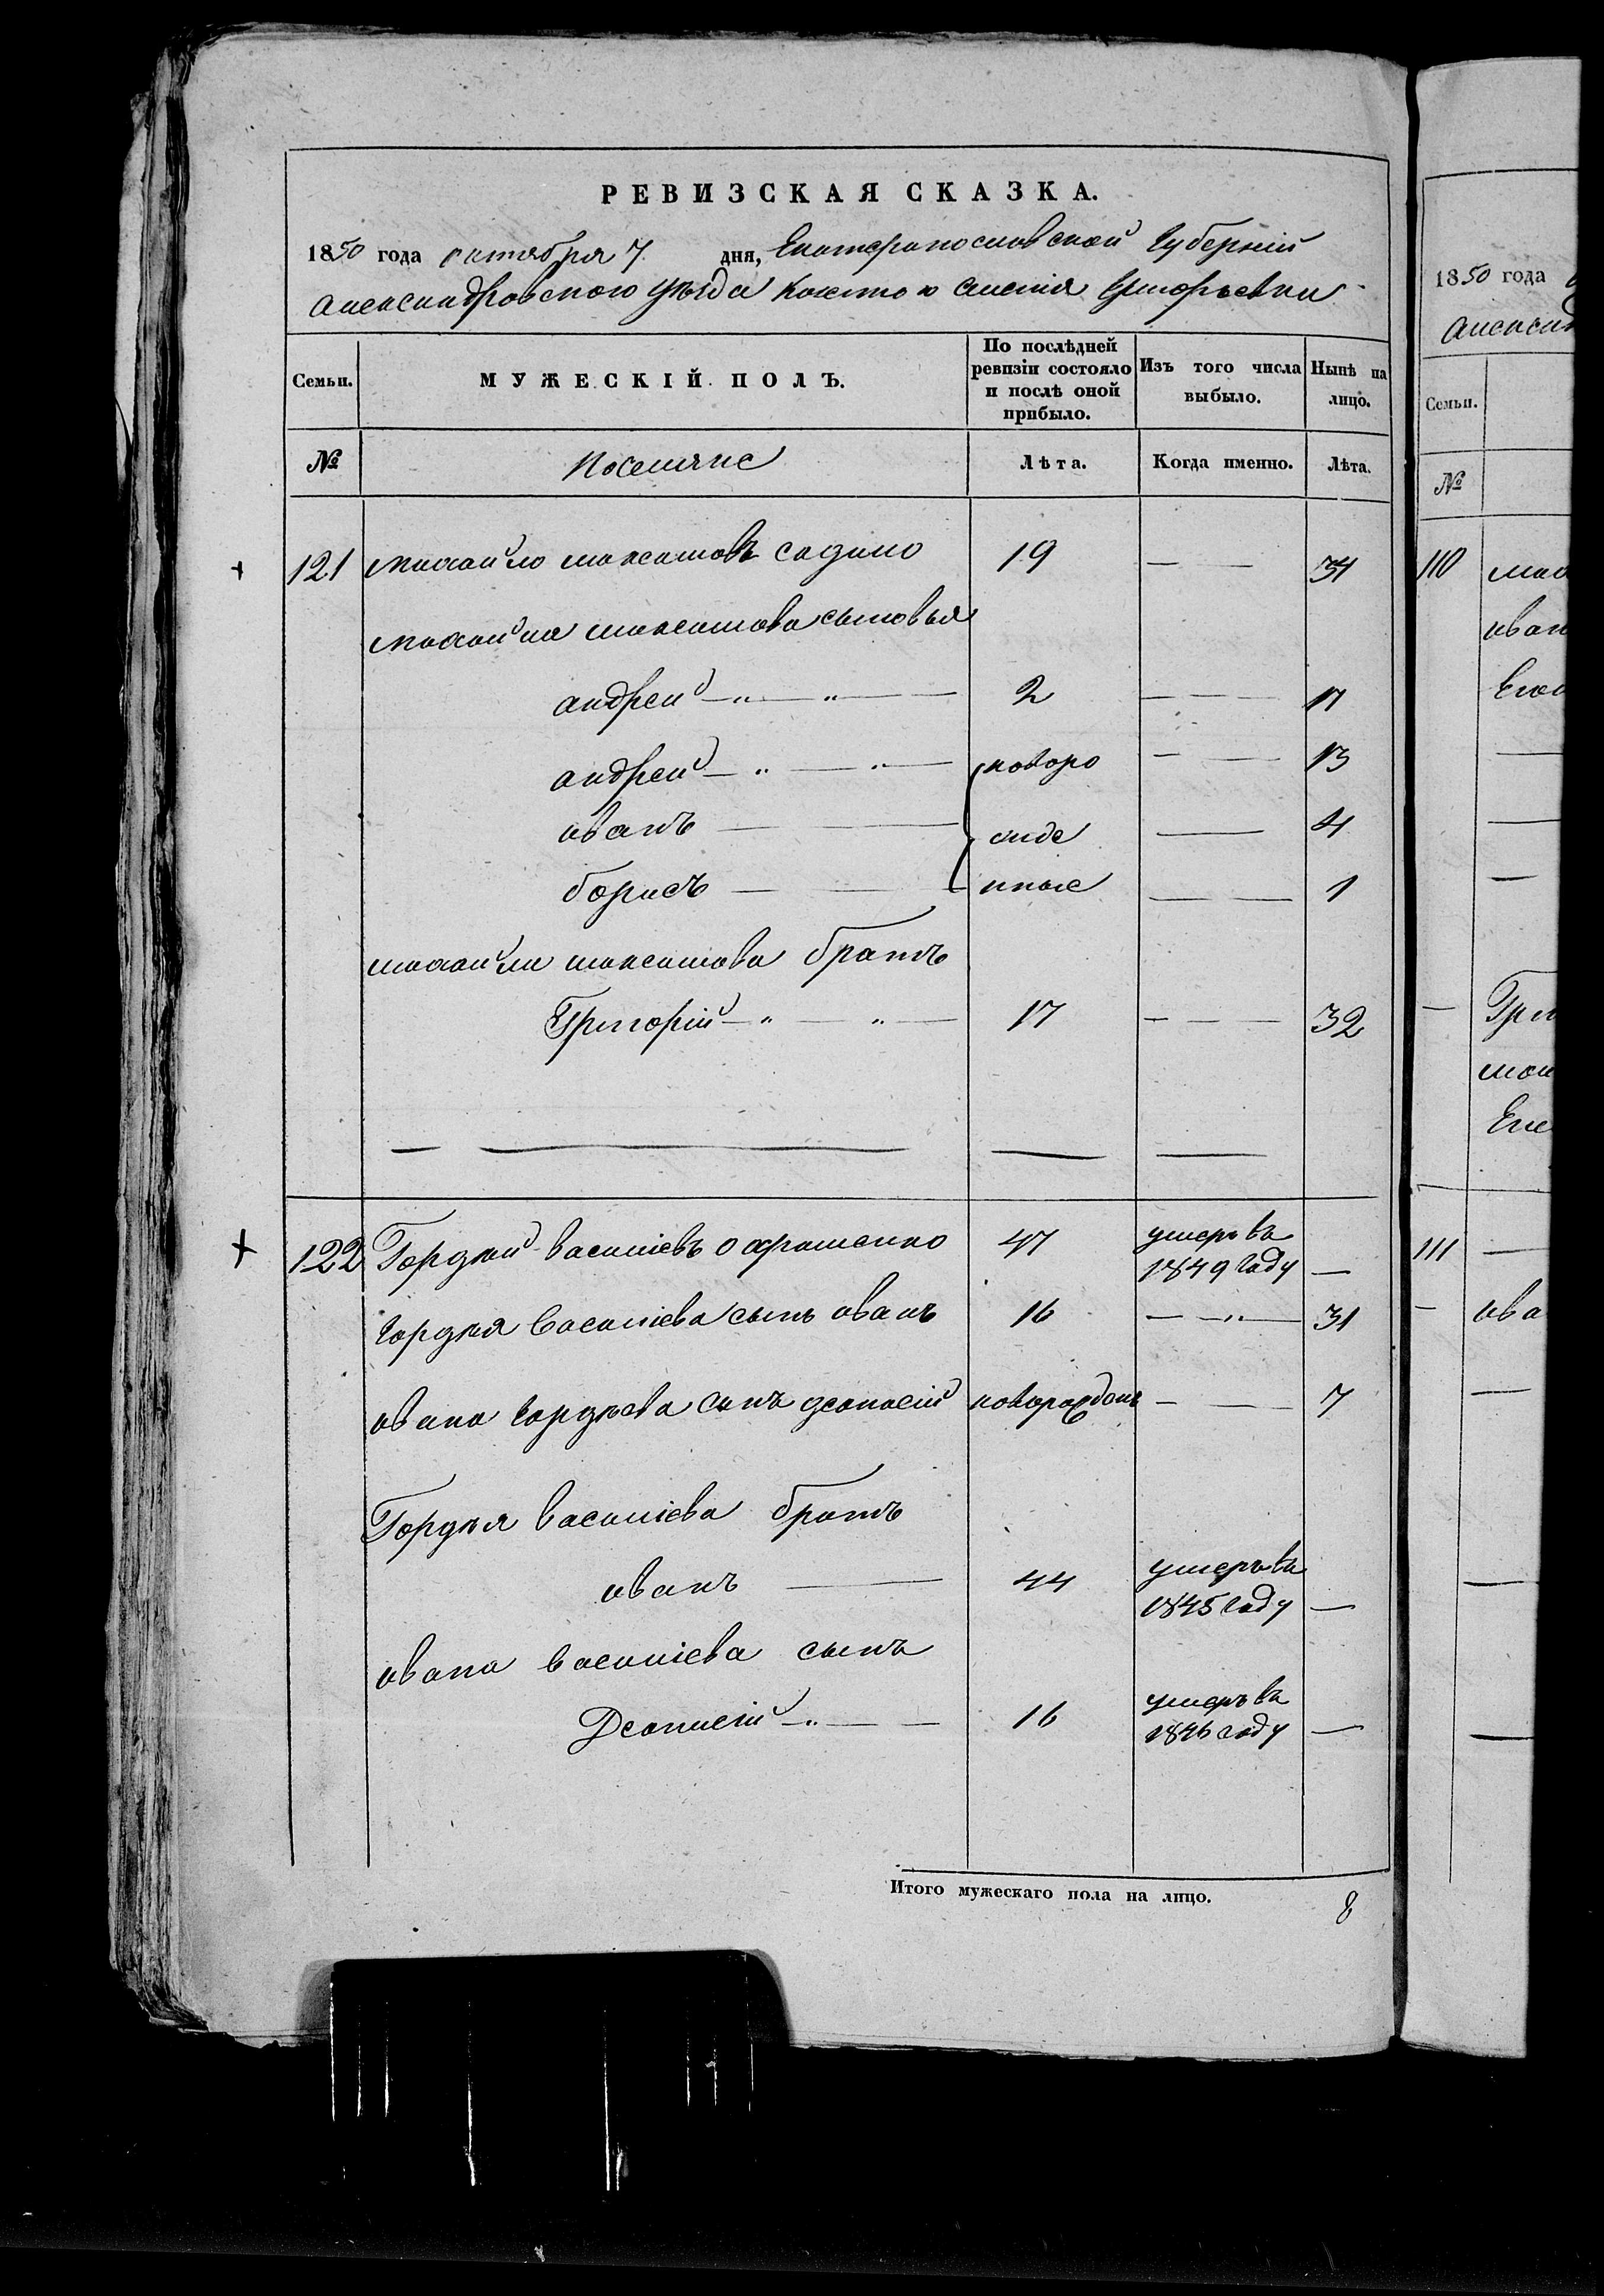 РЕВИЗСКАЯ СКАЗКА.
1850 года октября 7 дня, Екатеринославской Губерніи
Александровского уѣзда Григорьевки
Семьи. МУЖЕСКІЙ ПОЛЪ. По послѣдней ревизіи состояло и послѣ оной прибыло. Изъ того числа выбыло. Нынѣ на лицо.
№ Поселяне Лѣта. Когда именно. Лѣта.
121 михайло максимовъ 19 — — 34
михайла максимова сыновья
андрей —„— „— 2 — — — 17
андрей — „ — „— новоро — — 13
иванъ — — жде — 4
борисъ — — нные — — 1
михайла максимова братъ
Григорій —„ — „ — 17 — — — 32
122 Гордѣй василіевъ 47 умеръ въ
1849 году —
гордѣя василіева сынъ иванъ 16 — „ — 31
ивана гордѣева сынъ новорожден — — 7
Гордѣя василіева братъ
иванъ — 44 умеръ въ
1845 году —
ивана василіева сынъ
Деонисій —„— — 16 умеръ въ
1846 году —
Итого мужескаго пола на лицо. 8
1850 года
Александ
Семьи.
№
110
иван
—
Гри
111 —
ива